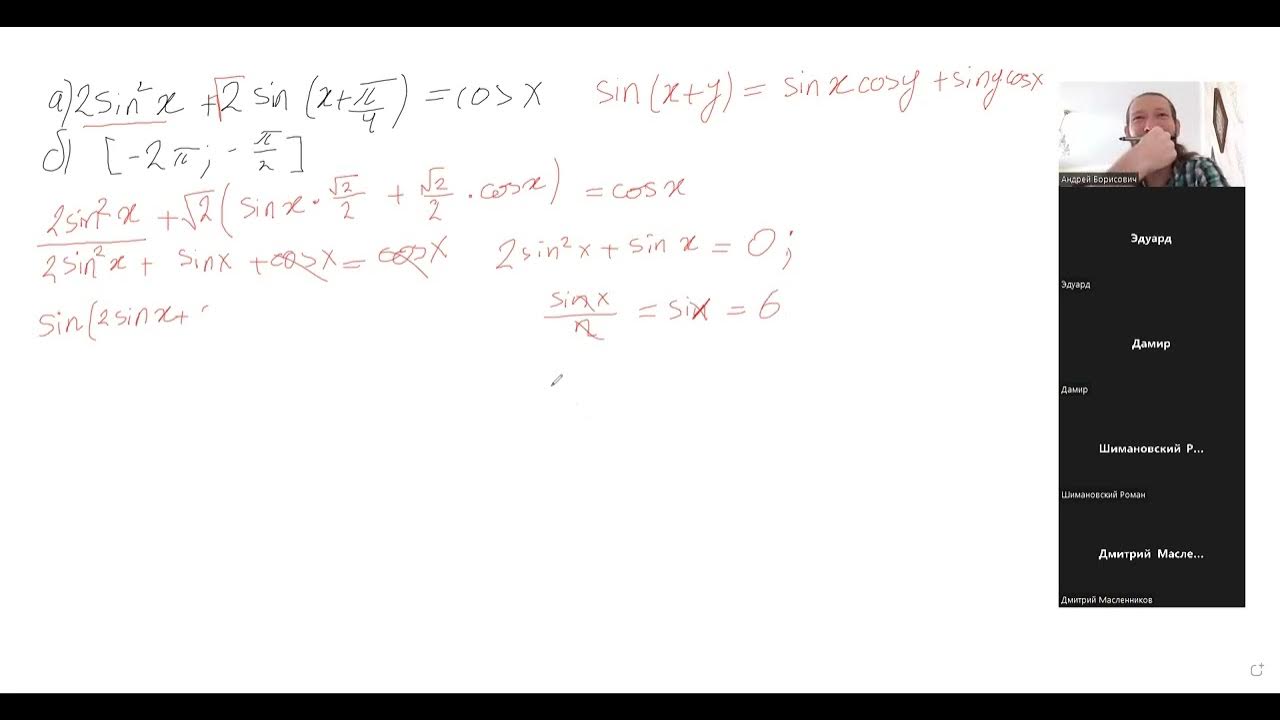 а) 2sin²x + √2 sin (x+π/4) = cos x    sin(x+y) = sin x cos y + sin y cos x
б) [-2π; -π/2]
2sin²x + √2 ( sin x · √2/2 + √2/2 · cos x ) = cos x
2sin²x + sin x + cos x = cos x    2sin²x + sin x = 0;
sin(2sin x +    sin x/n = six = 6
Андрей Борисович
Эдуард
Эдуард
Дамир
Дамир
Шимановский Р...
Шимановский Роман
Дмитрий Масле...
Дмитрий Масленников